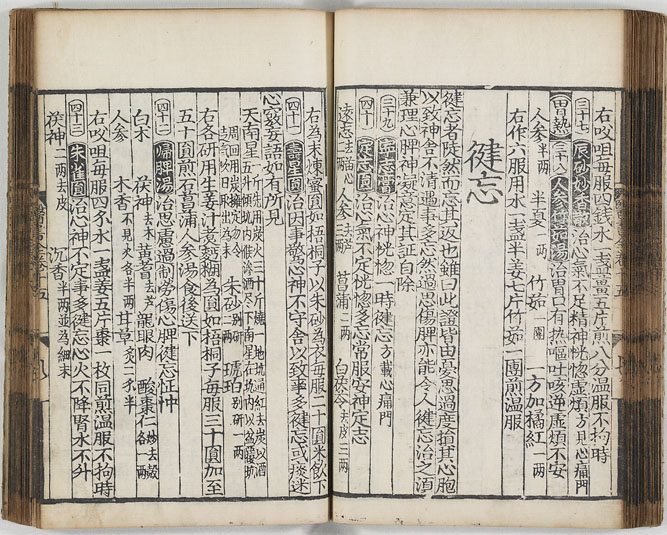 右㕮咀每服四錢水一盞薑五片煎八分溫服不拘時
三十七 辰砂妙香散 治心氣不足精神恍惚虛煩 方見心痛門
胃熱 三十八 人參竹茹湯 治胃口有熱嘔吐咳逆虛煩不安
人參半兩 半夏一兩 竹茹一團 一方加橘紅一兩
右作六服用水一盞半姜七片竹茹一團煎溫服
健忘
健忘者陡然而忘其返也雖曰此證皆由憂思過度損其心胞
以致神舍不清遇事多忘然過思傷脾亦能令人健忘治之須
兼理心脾神凝意定其証自除
三十九 寧志膏 治心神恍惚一時健忘 方載心痛門
四十 定志圓 治心氣不定恍惚多忘常服安神定志
遠志 人參 菖蒲二兩 白茯苓去皮三兩
右為末煉蜜圓如梧桐子以朱砂為衣每服二十圓米飲下
四十一 壽星圓 治因事驚心神不守舍以致事多健忘或痰迷
心竅妄語如有所見
天南星一斤先用炭火三十斤燒一地坑通紅去炭以酒五升傾坑內候滲酒尽下南星在坑內以盆覆坑周回用炭擁定勿令走氣次日取出為末 朱砂別研二兩 琥珀別研一兩
右各研用生姜汁煮麪糊為圓如梧桐子每服三十圓加至
五十圓煎石菖蒲人參湯食後送下
四十二 歸脾湯 治思慮過制勞傷心脾健忘怔忡
白朮 茯神去木 黃耆去芦 龍眼肉 酸棗仁炒去殼各一兩
人參 木香不見火各半兩 甘草炙二錢半
右㕮咀每服四錢水一盞姜五片棗一枚同煎溫服不拘時
四十三 朱雀圓 治心神不定事多健忘心火不降腎水不升
茯神二兩去皮 沉香半兩並為細末